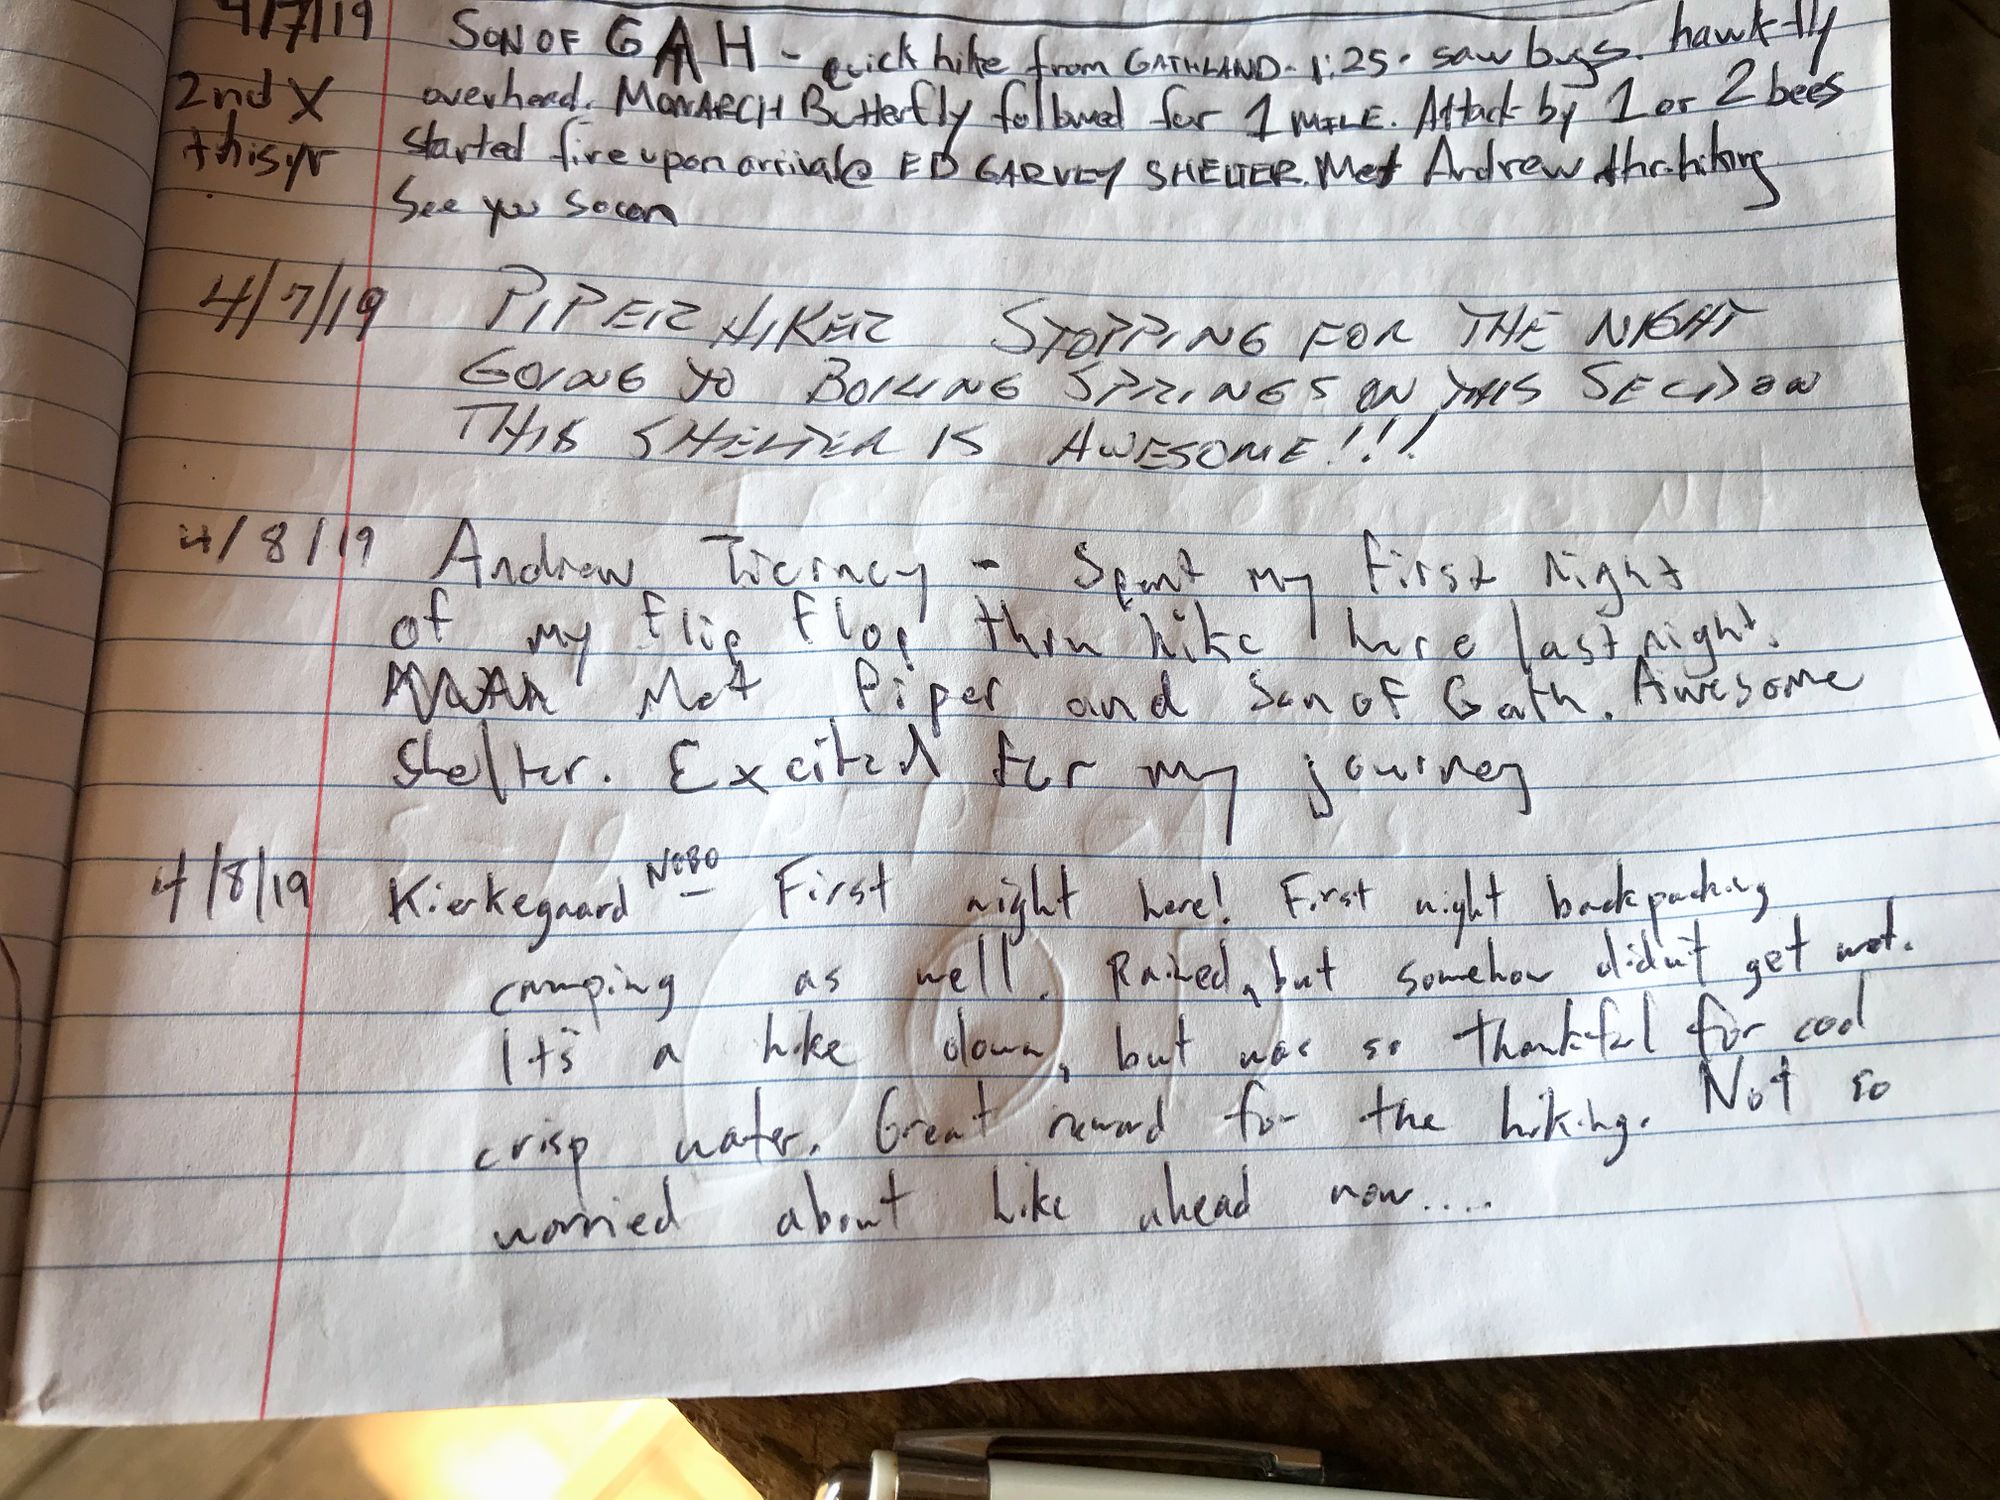 4/7/19 SON OF GAH - quick hike from GATHLAND - 1:25. saw bugs. hawk fly
2nd X overhead. MONARCH Butterfly followed for 1 MILE. Attack by 1 or 2 bees
this yr started fire upon arrival @ ED GARVEY SHELTER. Met Andrew thr-hiking
See you socon
4/7/19 PIPER HIKER STOPPING FOR THE NIGHT
GOING TO BOILING SPRINGS ON THIS SECTION
THIS SHELTER IS AWESOME!!!
4/8/19 Andrew Tierney - Spent my first night
of my flip flop thru hike here last night.
Met Piper and Son of Gath. Awesome
Shelter. Excited for my journey
4/8/19 Kierkegaard NOBO - First night here! First night backpacking
camping as well. Rained, but somehow didn't get wet.
It's a hike down, but was so thankful for cool
crisp water. Great reward for the hiking. Not so
worried about hike ahead now....